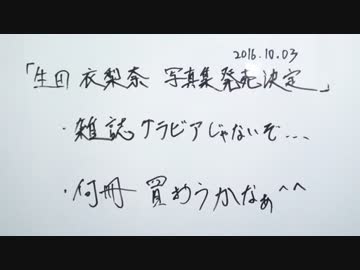 2016.10.03
「生田 衣梨奈 写真集発売決定」
・雑誌グラビアじゃないぞ...
・何冊 買おうかなぁ^^